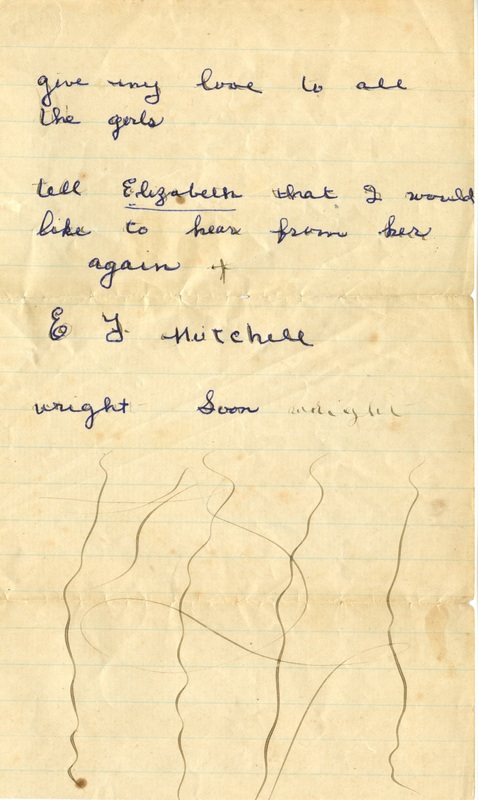 give my love to all
the girls
tell Elizabeth that I would
like to hear from her
again +
E F Mitchell
wright Soon wright